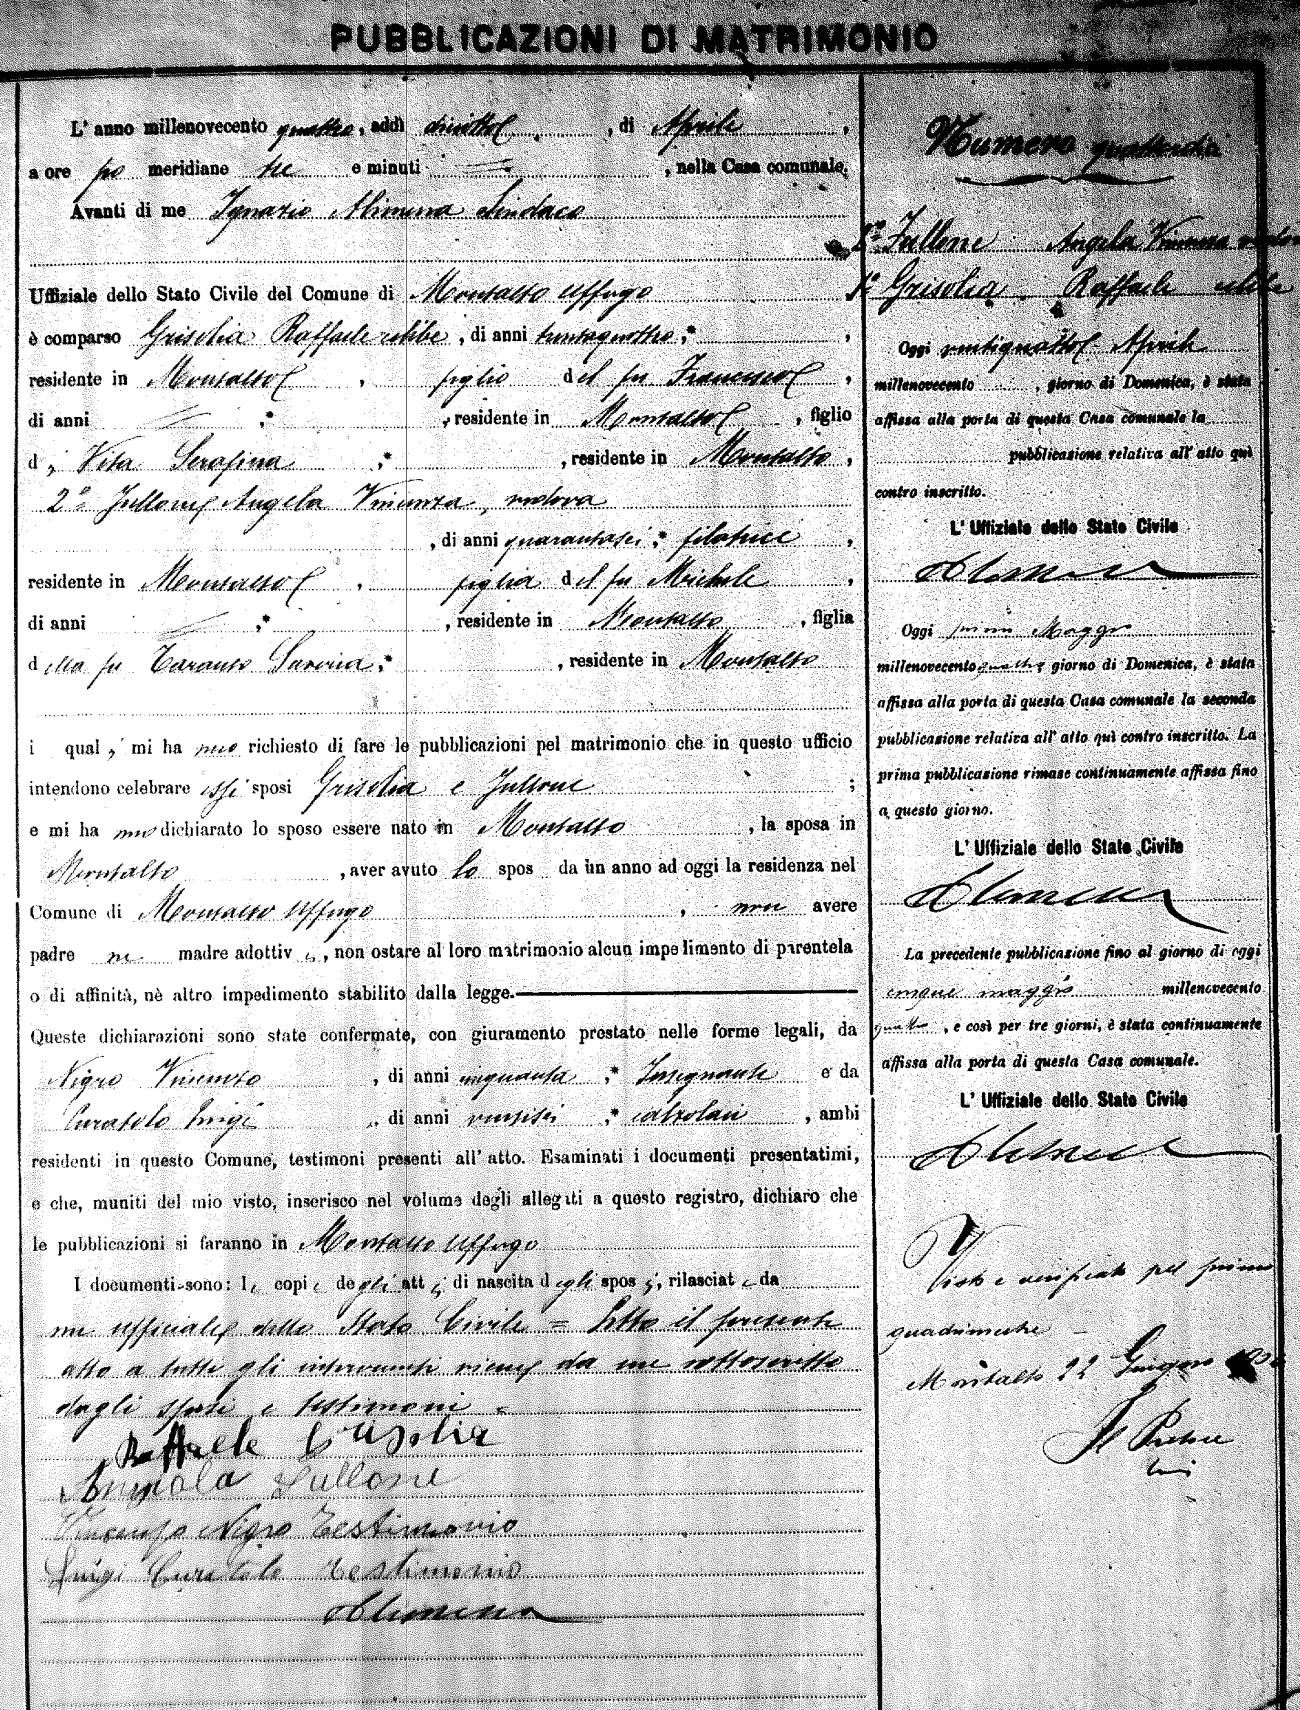 PUBBLICAZIONI DI MATRIMONIO
L' anno millenovecento quattro, addì diciotto, di Aprile,
a ore po meridiane tre e minuti = , nella Casa comunale.
Avanti di me Ignazio Alimena Sindaco
Uffiziale dello Stato Civile del Comune di Montalto Uffugo
è comparso Grisolia Raffaele celibe, di anni trentaquattro,*
residente in Montalto, figlio del fu Francesco,
di anni = ,* , residente in Montalto, figlio
di Vita Serafina ,* , residente in Montalto,
2° Jullone Angela Vincenza, vedova
, di anni quarantasei,* filatrice,
residente in Montalto, figlia del fu Michele,
di anni = ,* , residente in Montalto, figlia
della fu Taranto Saveria,* , residente in Montalto
i quali mi hanno richiesto di fare le pubblicazioni pel matrimonio che in questo ufficio
intendono celebrare essi sposi Grisolia e Jullone ;
e mi hanno dichiarato lo sposo essere nato in Montalto , la sposa in
Montalto , aver avuto lo spos da un anno ad oggi la residenza nel
Comune di Montalto Uffugo , non avere
padre ne madre adottivi, non ostare al loro matrimonio alcun impedimento di parentela
o di affinità, nè altro impedimento stabilito dalla legge.
Queste dichiarazioni sono state confermate, con giuramento prestato nelle forme legali, da
Nigro Vincenzo , di anni cinquanta ,* Insegnante e da
Curatolo Luigi , di anni ventisei ,* calzolaio , ambi
residenti in questo Comune, testimoni presenti all' atto. Esaminati i documenti presentatimi,
e che, muniti del mio visto, inserisco nel volume degli allegati a questo registro, dichiaro che
le pubblicazioni si faranno in Montalto Uffugo
I documenti sono: le copie degli atti di nascita degli sposi, rilasciate da
me ufficiale dello Stato Civile = Letto il presente
atto a tutti gli intervenuti viene da me sottoscritto
dagli sposi e testimoni =
Raffaele Grisolia
Angiola Jullone
Vincenzo Nigro Testimonio
Luigi Curatolo testimonio
Alimena
Numero quattordici
2° Jullone Angela Vincenza
1° Grisolia Raffaele celibe
Oggi ventiquattro Aprile
millenovecento , giorno di Domenica, è stata
affissa alla porta di questa Casa comunale la
pubblicazione relativa all' atto quì
contro inscritto.
L' Uffiziale dello Stato Civile
Alimena
Oggi primo Maggio
millenovecento quattro, giorno di Domenica, è stata
affissa alla porta di questa Casa comunale la seconda
pubblicazione relativa all' atto quì contro inscritto. La
prima pubblicazione rimase continuamente affissa fino
a questo giorno.
L' Uffiziale dello Stato Civile
Alimena
La precedente pubblicazione fino al giorno di oggi
cinque maggio millenovecento
quattro, e così per tre giorni, è stata continuamente
affissa alla porta di questa Casa comunale.
L' Uffiziale dello Stato Civile
Alimena
Visto e verificato pel primo
quadrimestre
Montalto 22 Giugno
Il Pretore